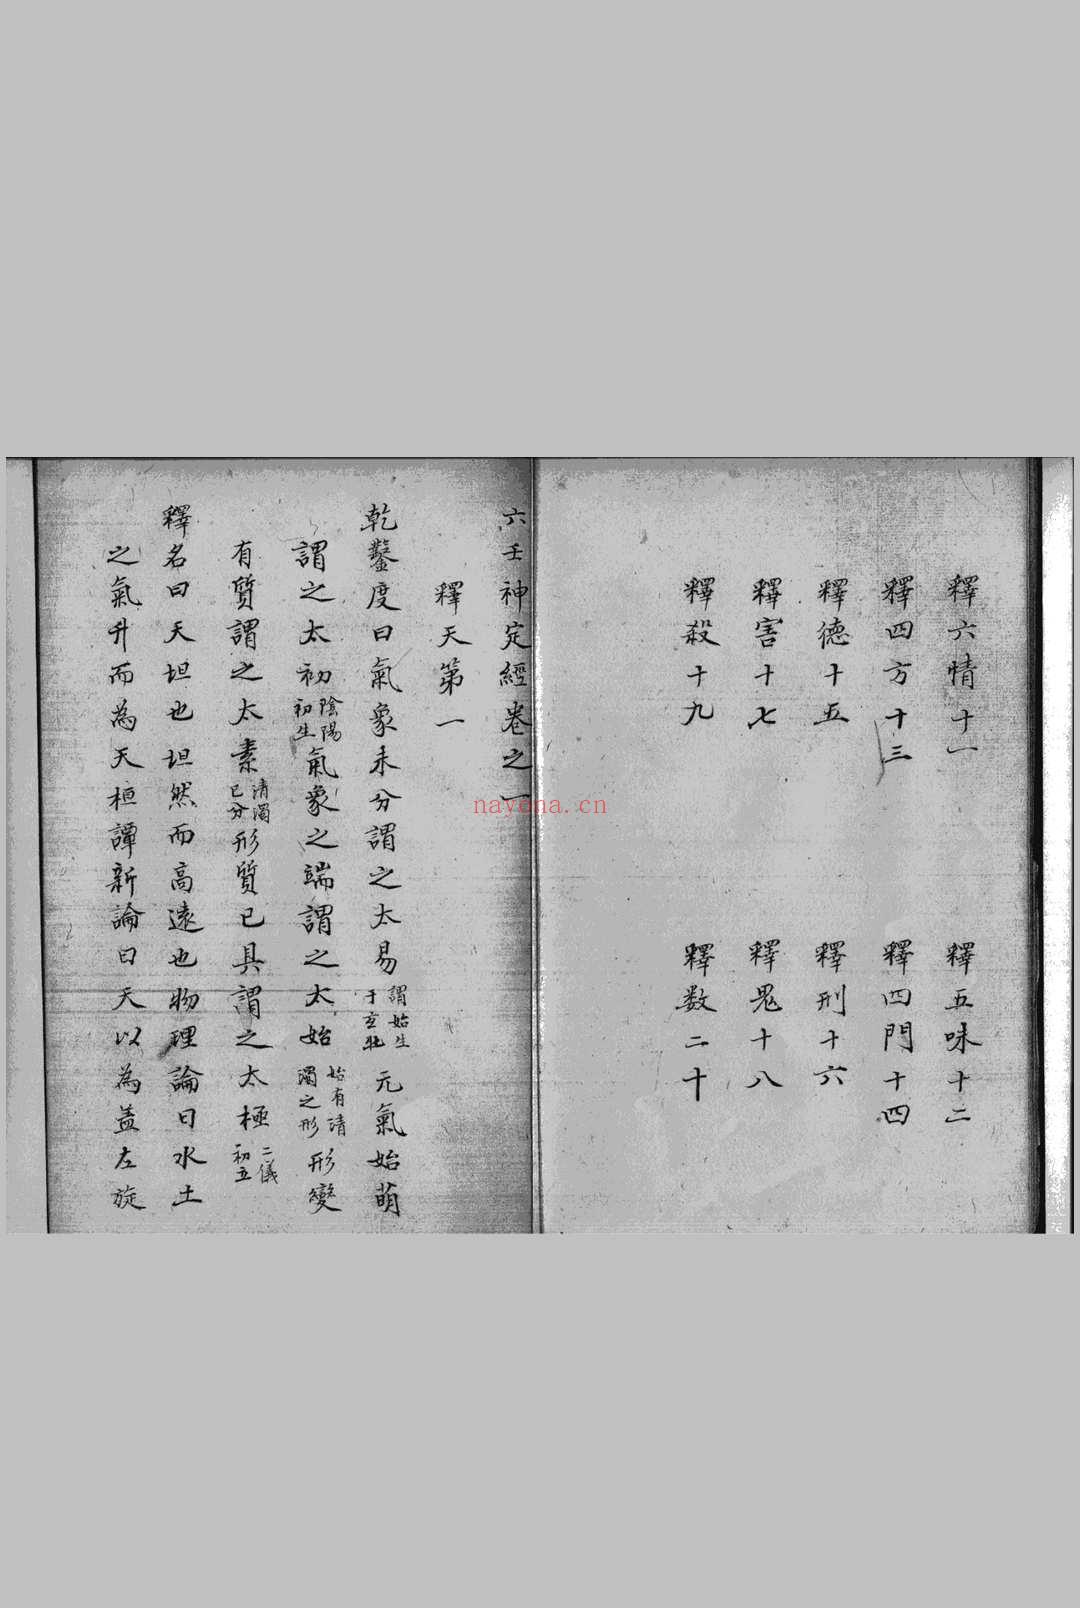 釋六情十一
釋五味十二
釋四方十三
釋四門十四
釋德十五
釋刑十六
釋害十七
釋鬼十八
釋殺十九
釋数二十
六壬神定經卷之一
釋天第一
乾鑿度曰氣象未分謂之太易謂始生于玄牝元氣始萌
謂之太初陰陽初生氣象之端謂之太始始有清濁之形形變
有質謂之太素清濁已分形質已具謂之太極二儀初立
釋名曰天坦也坦然而高遠也物理論曰水土
之氣升而為天桓譚新論曰天以為盖左旋
nayona.cn